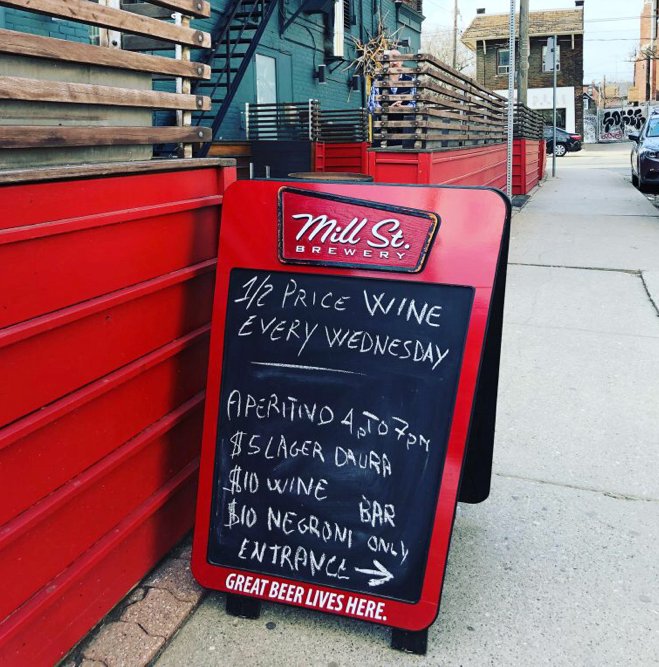 Mill St.
BREWERY
1/2 PRICE WINE
EVERY WEDNESDAY
APERITIVO 4pTO 7pM
$5 LAGER DAURA
$10 WINE
$10 NEGRONI
BAR
ONLY
ENTRANCE →
GREAT BEER LIVES HERE.